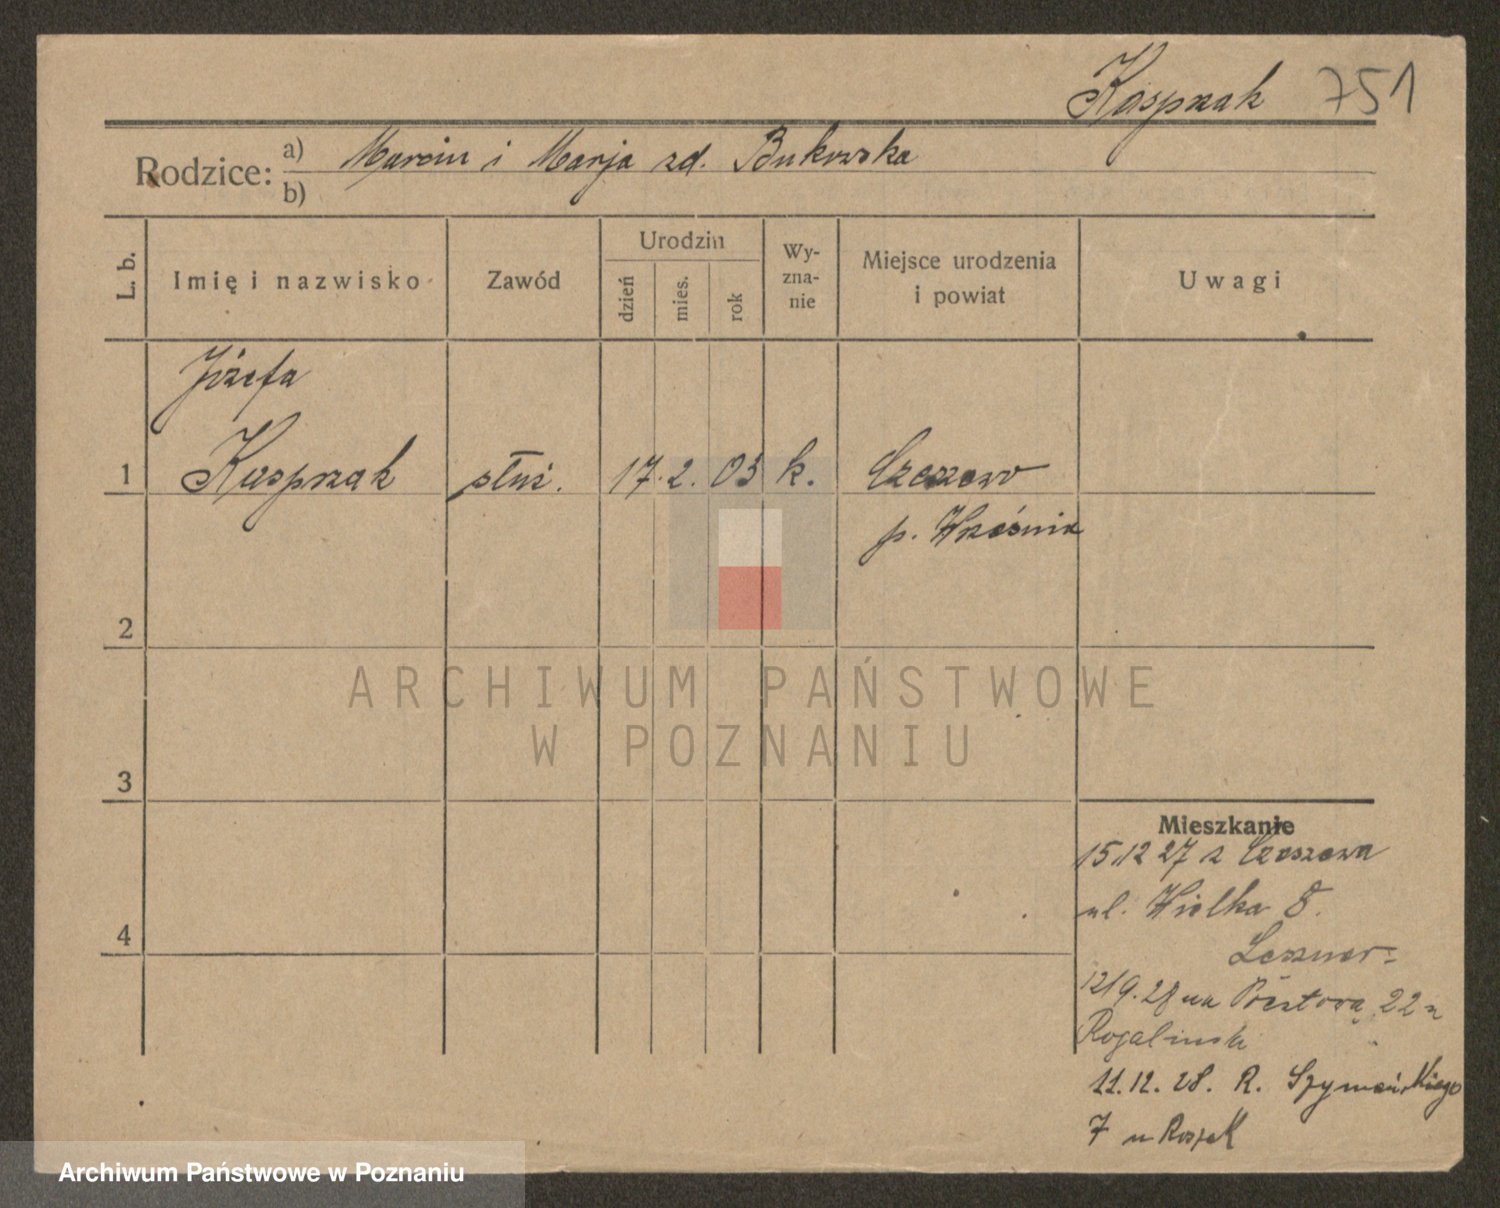 Kasprzak 751
Rodzice: a) Marcin i Marja zd. Bukowska
b)
L. b.
Imię i nazwisko
Zawód
Urodzin
dzień
mies.
rok
Wy-
zna-
nie
Miejsce urodzenia
i powiat
Uwagi
Józefa
1 Kasprzak służ. 17. 2. 03 k. Czeszewo
p. Września
2
3
4
ARCHIWUM PAŃSTWOWE
W POZNANIU
Mieszkanie
15.12 27 z Czeszewa
ul. Wielka 8.
12/9. 28 na 22
Rogalinski
11.12.28. R. Szymańskiego
7 u
Archiwum Państwowe w Poznaniu